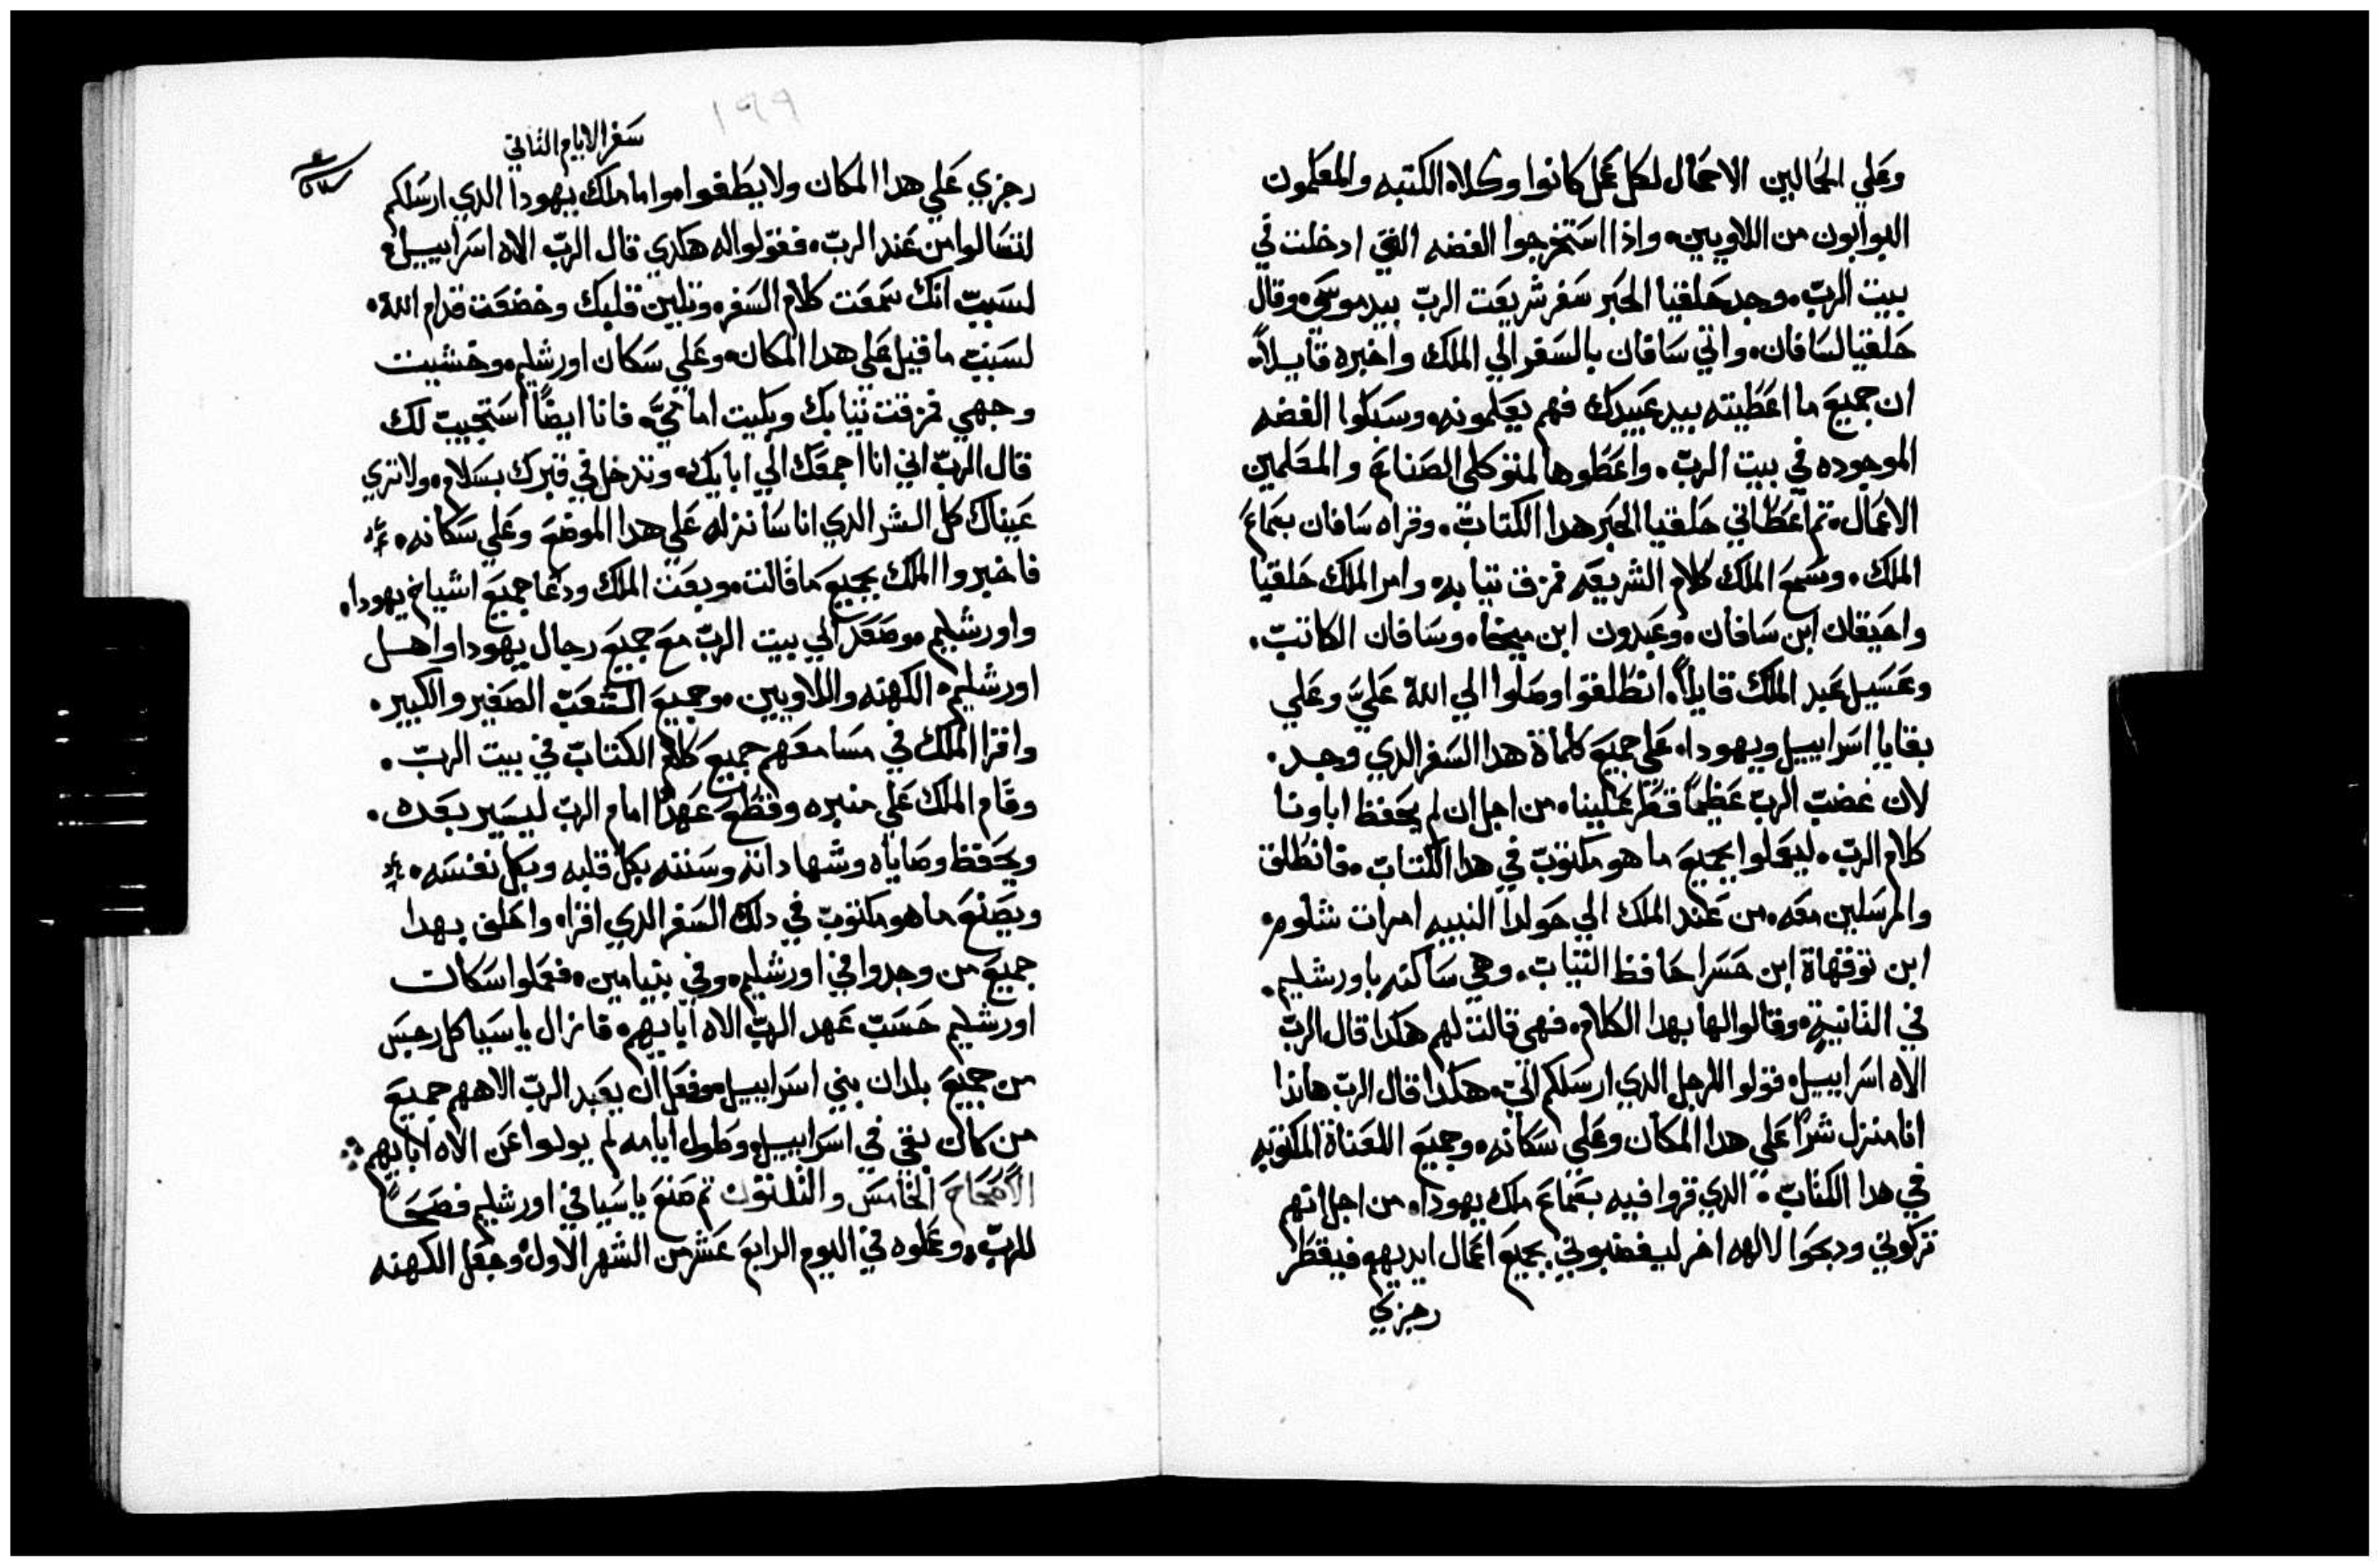 وعلي الحمالين الاحمال لكل عمل كانوا وكلاه الكتبه والمعلمون
البوابون من اللاويين. واذا استخرجوا الفضه التي ادخلت في
بيت الرب. وجد حلقيا الحبر سفر شريعت الرب بيد موسي. وقال
حلقيا لسافان. واتي سافان بالسفر الي الملك واخبره قايلاً.
ان جميع ما اعطيته بيد عبيدك فهم يعلمونه. وسبكوا الفضه
الموجوده في بيت الرب. واعطوها لمتوكلي الصناع والمعلمين
الاعمال. تم اعطاني حلقيا الحبر هدا الكتاب. وقراه سافان بسماع
الملك. وسمع الملك كلام الشريعه فمزق تيابه. وامر الملك حلقيا
واحيقان ابن سافان. وعبدون ابن ميخا. وسافان الكاتب.
وعسيل عبد الملك قايلاً. انطلقوا وصلوا الي الله عليَّ وعلي
بقايا اسراييل ويهودا. علي جميع كلماة هدا السفر الدي وجد.
لان غضب الرب عظيماً قطر علينا. من اجل ان لم يحفظ اباونا
كلام الرب. ليعملوا بجميع ما هو مكتوب في هدا الكتاب. فانطلق
والمرسلين معه. من عند الملك الي حولدا النبيه امرات شلوم.
ابن توقهاة ابن حسرا حافظ التياب. وهي ساكنه باورشليم.
في التانية. وقالوا لها بهدا الكلام. فهي قالت لهم هكدا قال الرب
الاه اسراييل. قولوا للرجل الدي ارسلكم الي. هكدا قال الرب هاندا
انا منزل شراً علي هدا المكان وعلي سكانه. وجميع اللعناة المكتوبه
في هدا الكتاب. الدي قروا فيه بسماع ملك يهودا. من اجل انهم
تركوني ودبحوا لالهه اخر ليغضبوني بجميع اعمال ايديهم فيقطر
رجزي
١٩٩
سفر الايام التاني
رجزي علي هدا المكان ولا يطفوا. واما ملك يهودا الدي ارسلكم
لتسالوا من عند الرب. فقولوا له هكدي قال الرب الاه اسراييل.
لسبب انك سمعت كلام السفر. وتلين قلبك وخضعت قدام الله.
لسبب ما قيل علي هدا المكان. وعلي سكان اورشليم. وخشيت
وجهي فمزقت تيابك وبكيت امامي. فانا ايضاً استجيب لك
قال الرب اني انا اجمعك الي ابايك. وتدخل في قبرك بسلام. ولا تري
عيناك كل الشر الدي انا سانزله علي هدا الموضع وعلي سكانه.
فاخبروا الملك بجميع ما قالت. وبعت الملك ودعا جميع اشياخ يهودا.
واورشليم. وصعد الي بيت الرب مع جميع رجال يهودا واهل
اورشليم. الكهنه واللاويين. وجميع الشعب الصغير والكبير.
واقرا الملك في مسامعهم جميع كلام الكتاب في بيت الرب.
وقام الملك علي منبره وقطع عهداً امام الرب ليسير بعده.
ويحفظ وصاياه وشهاداته وسننه بكل قلبه وبكل نفسه.
ويصنع ما هو مكتوب في دلك السفر الدي اقراه. واحلف بهدا
جميع من وجدوا في اورشليم. وفي بنيامين. فعملوا سكان
اورشليم حسب عهد الرب الاه ابايهم. فازال ياسيا كل رجس
من جميع بلدان بني اسراييل. وفعل ان يعبد الرب الاههم جميع
من كان بقي في اسراييل. وطول ايامه لم يولوا عن الاه ابايهم
الاصحاح الخامس والتلتون تم صنع ياسيا في اورشليم فصحاً
للرب. وعملوه في اليوم الرابع عشر من الشهر الاول. وجعل الكهنه